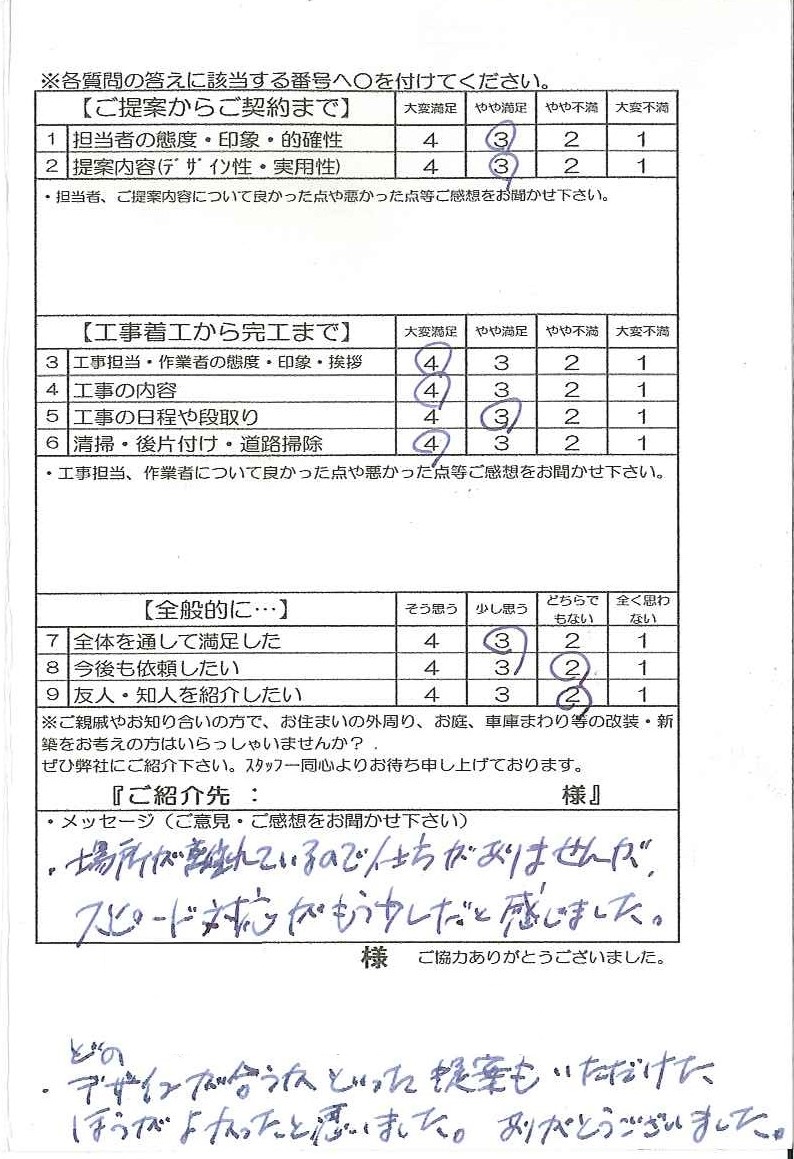 ※各質問の答えに該当する番号へ〇を付けてください。
【ご提案からご契約まで】 大変満足 やや満足 やや不満 大変不満
1 担当者の態度・印象・的確性 4 3 2 1
2 提案内容(ﾃﾞｻﾞｲﾝ性・実用性) 4 3 2 1
・担当者、ご提案内容について良かった点や悪かった点等ご感想をお聞かせ下さい。
【工事着工から完工まで】 大変満足 やや満足 やや不満 大変不満
3 工事担当・作業者の態度・印象・挨拶 4 3 2 1
4 工事の内容 4 3 2 1
5 工事の日程や段取り 4 3 2 1
6 清掃・後片付け・道路掃除 4 3 2 1
・工事担当、作業者について良かった点や悪かった点等ご感想をお聞かせ下さい。
【全般的に…】 そう思う 少し思う どちらでもない 全く思わない
7 全体を通して満足した 4 3 2 1
8 今後も依頼したい 4 3 2 1
9 友人・知人を紹介したい 4 3 2 1
※ご親戚やお知り合いの方で、お住まいの外周り、お庭、車庫まわり等の改装・新
築をお考えの方はいらっしゃいませんか？
ぜひ弊社にご紹介下さい。ｽﾀｯﾌ一同心よりお待ち申し上げております。
『ご紹介先： 様』
・メッセージ（ご意見・ご感想をお聞かせ下さい）
・場所が離れているので仕方がありませんが、
スピード対応がもう少しだと感じました。
様 ご協力ありがとうございました。
どの
・デザインが合うかといった提案もいただけた、
ほうがよかったと思いました。ありがとうございました。